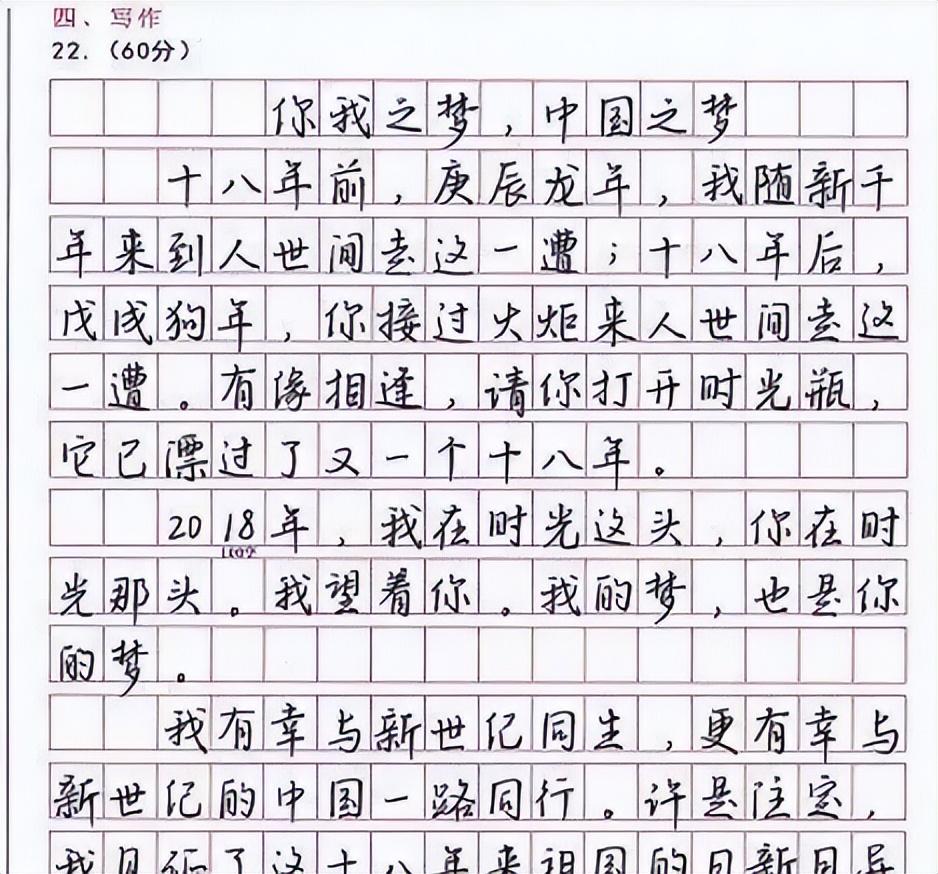 四、写作
22.（60分）
你我之梦，中国之梦
十八年前，庚辰龙年，我随新千
年来到人世间走这一遭；十八年后，
戊戌狗年，你接过火炬来人世间走这
一遭。有缘相逢，请你打开时光瓶，
它已漂过了又一个十八年。
2018年，我在时光这头，你在时
光那头。我望着你。我的梦，也是你
的梦。
我有幸与新世纪同生，更有幸与
新世纪的中国一路同行。许是注定，
我见证了这十八年来祖国的日新月异